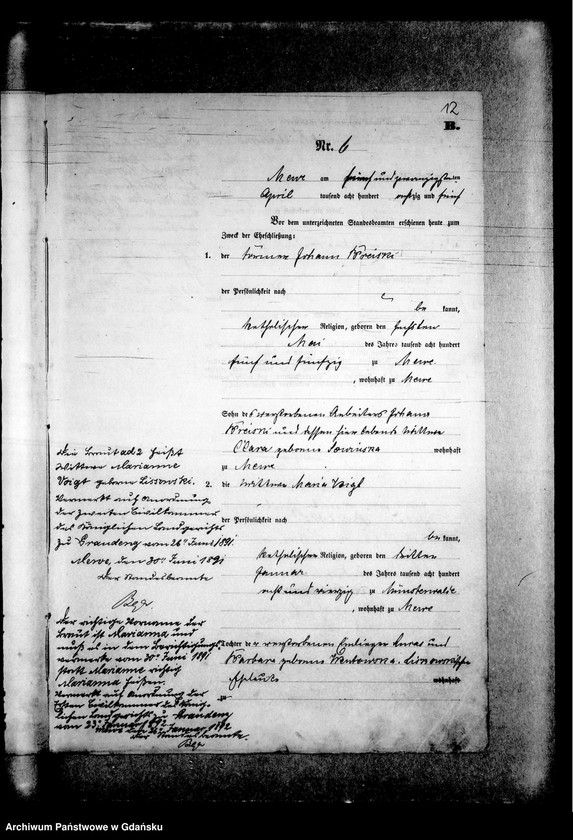 12
B.
Nr. 6
Mewe am fünf und zwanzigsten
April tausend acht hundert achtzig und fünf
Vor dem unterzeichneten Standesbeamten erschienen heute zum
Zweck der Eheschließung:
1. der Johann
der Persönlichkeit nach
be kannt,
katholischer Religion, geboren den sechsten
Mai des Jahres tausend acht hundert
fünf und fünfzig zu Mewe
, wohnhaft zu Mewe
Sohn des verstorbenen Arbeiters Johann
und dessen hier lebende Wittwe
Clara geborene wohnhaft
zu Mewe
2. die Wittwe Maria Voigt
der Persönlichkeit nach
be kannt,
katholischer Religion, geboren den dritten
Januar des Jahres tausend acht hundert
acht und vierzig zu Münsterwalde
, wohnhaft zu Mewe
Tochter der verstorbenen Einlieger Lucas und
Barbara geborene
Eheleute wohnhaft
zu
Die Braut ad 2 heißt
Wittwe Marianne
Voigt geborene Lissewski.
Vermerkt auf Anordnung
der zweiten Civilkammer
des Königlichen Landgerichts
zu Graudenz vom 26ten Juni 1891
Mewe, den 30ten Juni 1891
Der Standesbeamte
Der richtige Vorname der
Braut ist Marianna und
muß es in dem Berichtigungs-
vermerke vom 30ten Juni 1891
statt Marianne richtig
Marianna heißen.
Vermerkt auf Anordnung der
Ersten Civilkammer des König-
lichen Landgerichts zu Graudenz
vom 23. Januar 1892
Mewe den Januar 1892
Der Standesbeamte
Archiwum Państwowe w Gdańsku